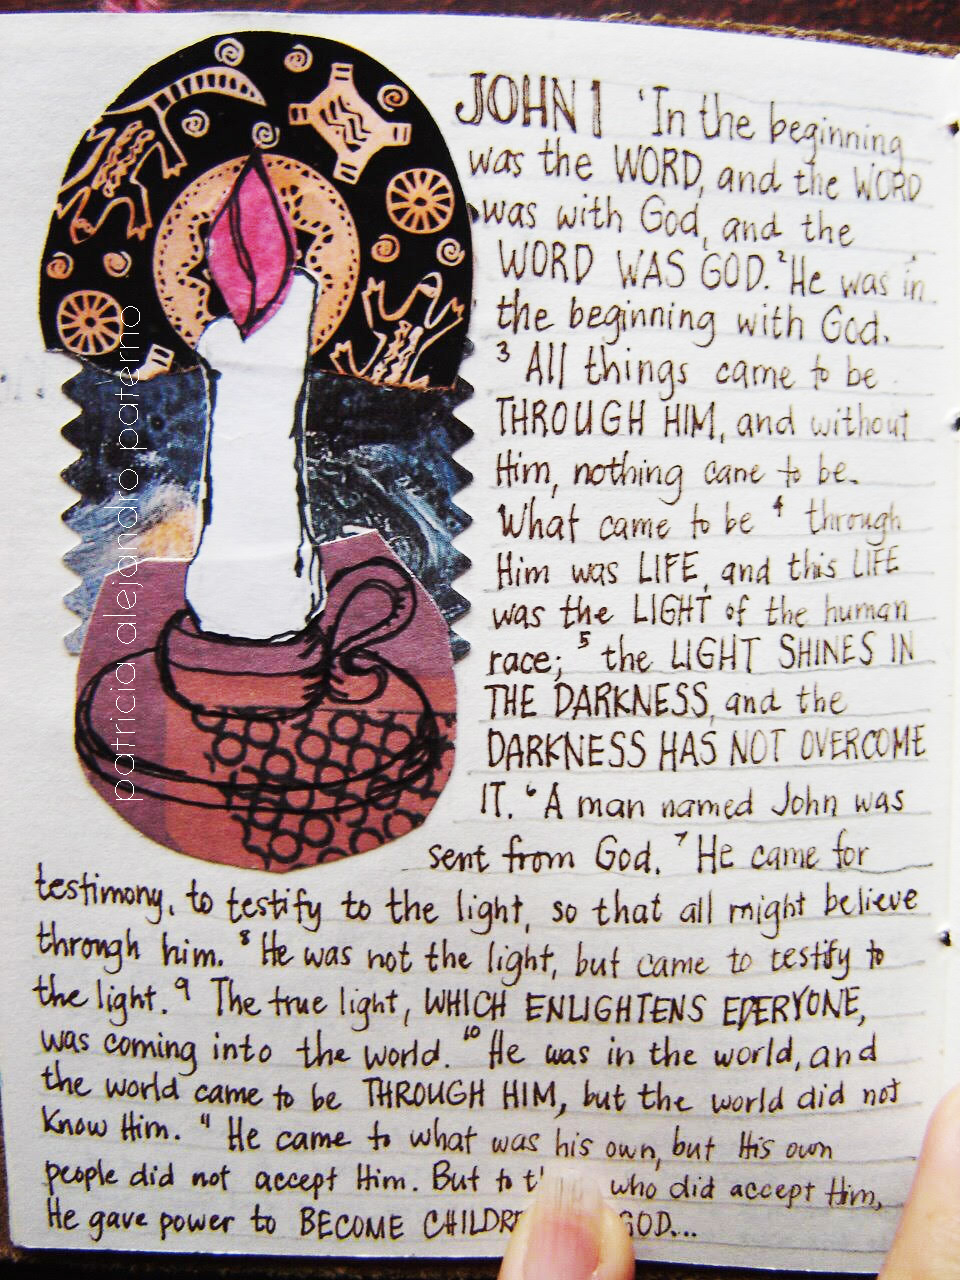 JOHN 1 'In the beginning
was the WORD, and the WORD
was with God, and the
WORD WAS GOD. ²He was in
the beginning with God.
³ All things came to be
THROUGH HIM, and without
Him, nothing cane to be.
What came to be ⁴ through
Him was LIFE, and this LIFE
was the LIGHT of the human
race; ⁵ the LIGHT SHINES IN
THE DARKNESS, and the
DARKNESS HAS NOT OVERCOME
IT. ⁶A man named John was
sent from God. ⁷ He came for
testimony, to testify to the light, so that all might believe
through him. ⁸ He was not the light, but came to testify to
the light. ⁹ The true light, WHICH ENLIGHTENS EVERYONE,
was coming into the world. ¹⁰ He was in the world, and
the world came to be THROUGH HIM, but the world did not
know Him. ¹¹ He came to what was his own, but His own
people did not accept Him. But to who did accept Him,
He gave power to BECOME GOD...
patricia alejandro paterno